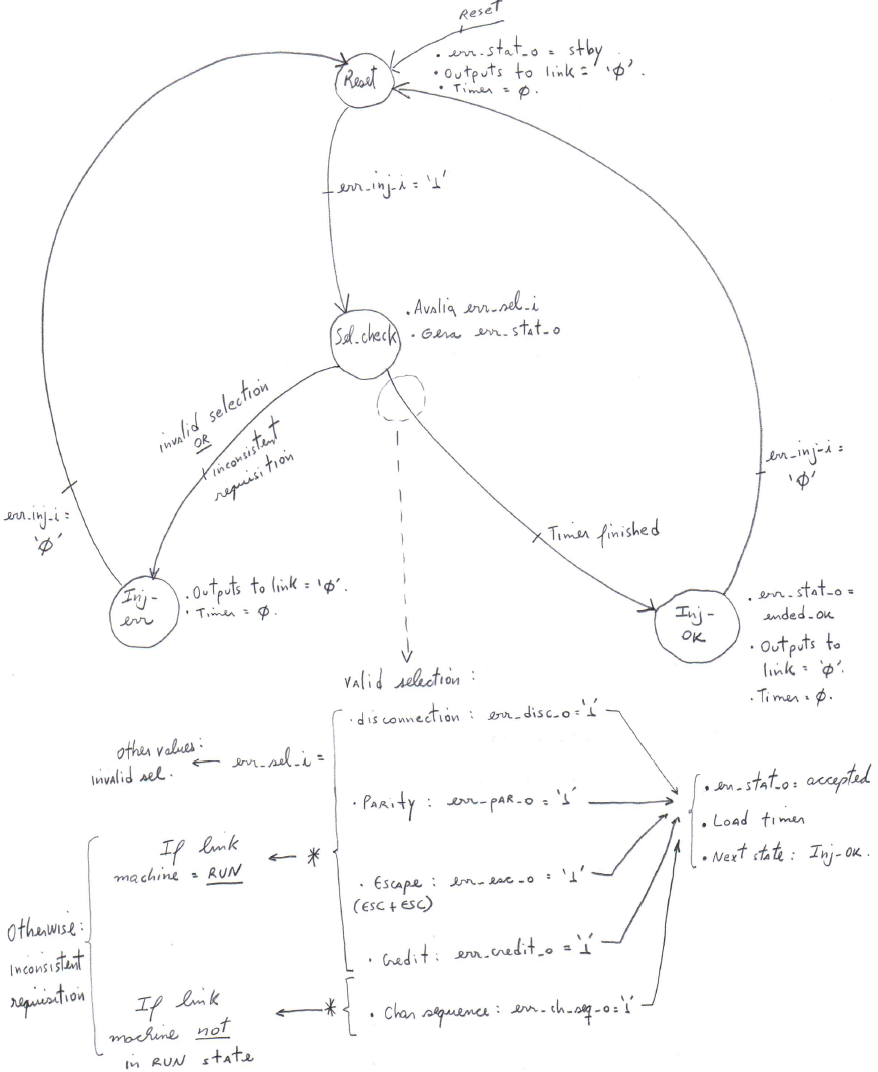 Reset
• err_stat_o = stby
• Outputs to link = 'φ'.
• Timer = φ.
Reset
err_inj_i = '1'
Sel_check
• Avalia err_sel_i
• Gera err_stat_o
invalid selection
OR
inconsistent
requisition
err_inj_i =
'φ'
err_inj_i =
'φ'
Timer finished
Inj-
err
• Outputs to link = 'φ'.
• Timer = φ.
Inj-
OK
• err_stat_o =
ended_ok
• Outputs to
link = 'φ'.
• Timer = φ.
Valid selection:
• disconnection: err_disc_o = '1'
Other values:
invalid sel. ← err_sel_i =
• Parity: err_par_o = '1'
• Escape: err_esc_o = '1'
(ESC + ESC)
• Credit: err_credit_o = '1'
• Char sequence: err_ch_seq_o = '1'
• err_stat_o: accepted
• Load timer
• Next state: Inj-OK.
If link
machine = RUN
← *
Otherwise:
inconsistent
requisition
If link
machine not
in RUN state
← *